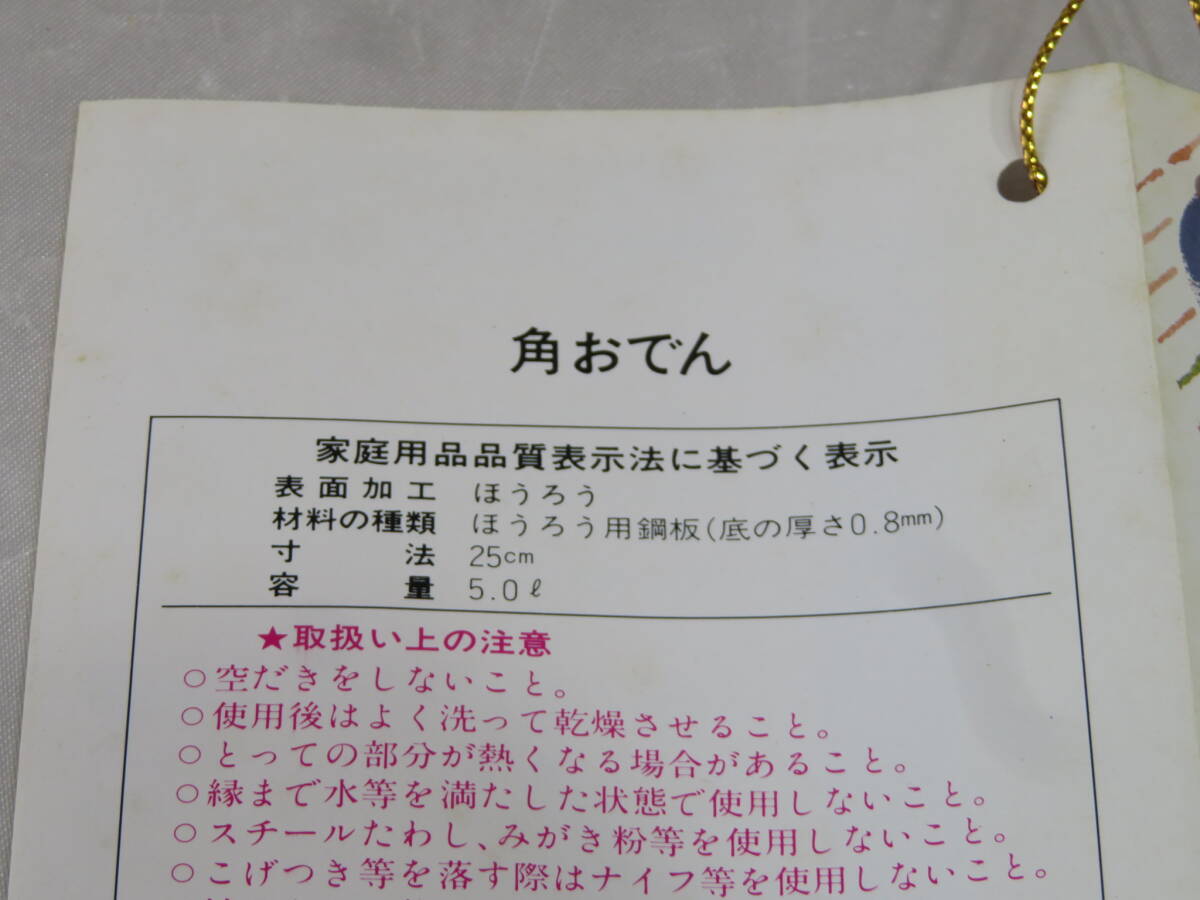 角おでん
家庭用品品質表示法に基づく表示
表面加工 ほうろう
材料の種類 ほうろう用鋼板(底の厚さ0.8mm)
寸法 25cm
容量 5.0ℓ
★取扱い上の注意
○空だきをしないこと。
○使用後はよく洗って乾燥させること。
○とっての部分が熱くなる場合があること。
○縁まで水等を満たした状態で使用しないこと。
○スチールたわし、みがき粉等を使用しないこと。
○こげつき等を落す際はナイフ等を使用しないこと。